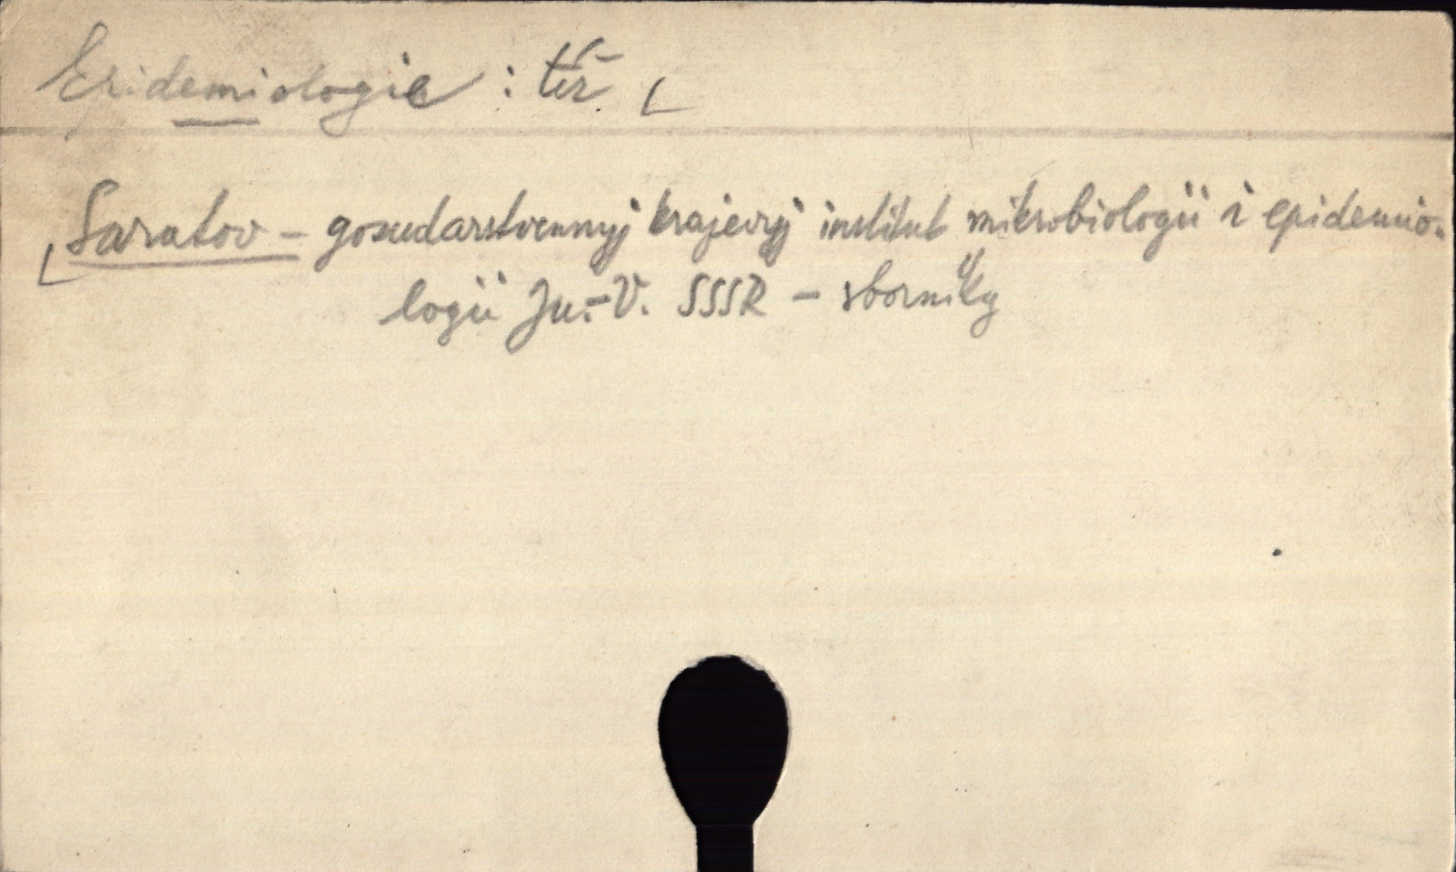 Epidemiologie : též
Saratov - gosudarstvennyj krajevyj institut mikrobiologii i epidemio-
logii Ju.-V. SSSR - sborníky